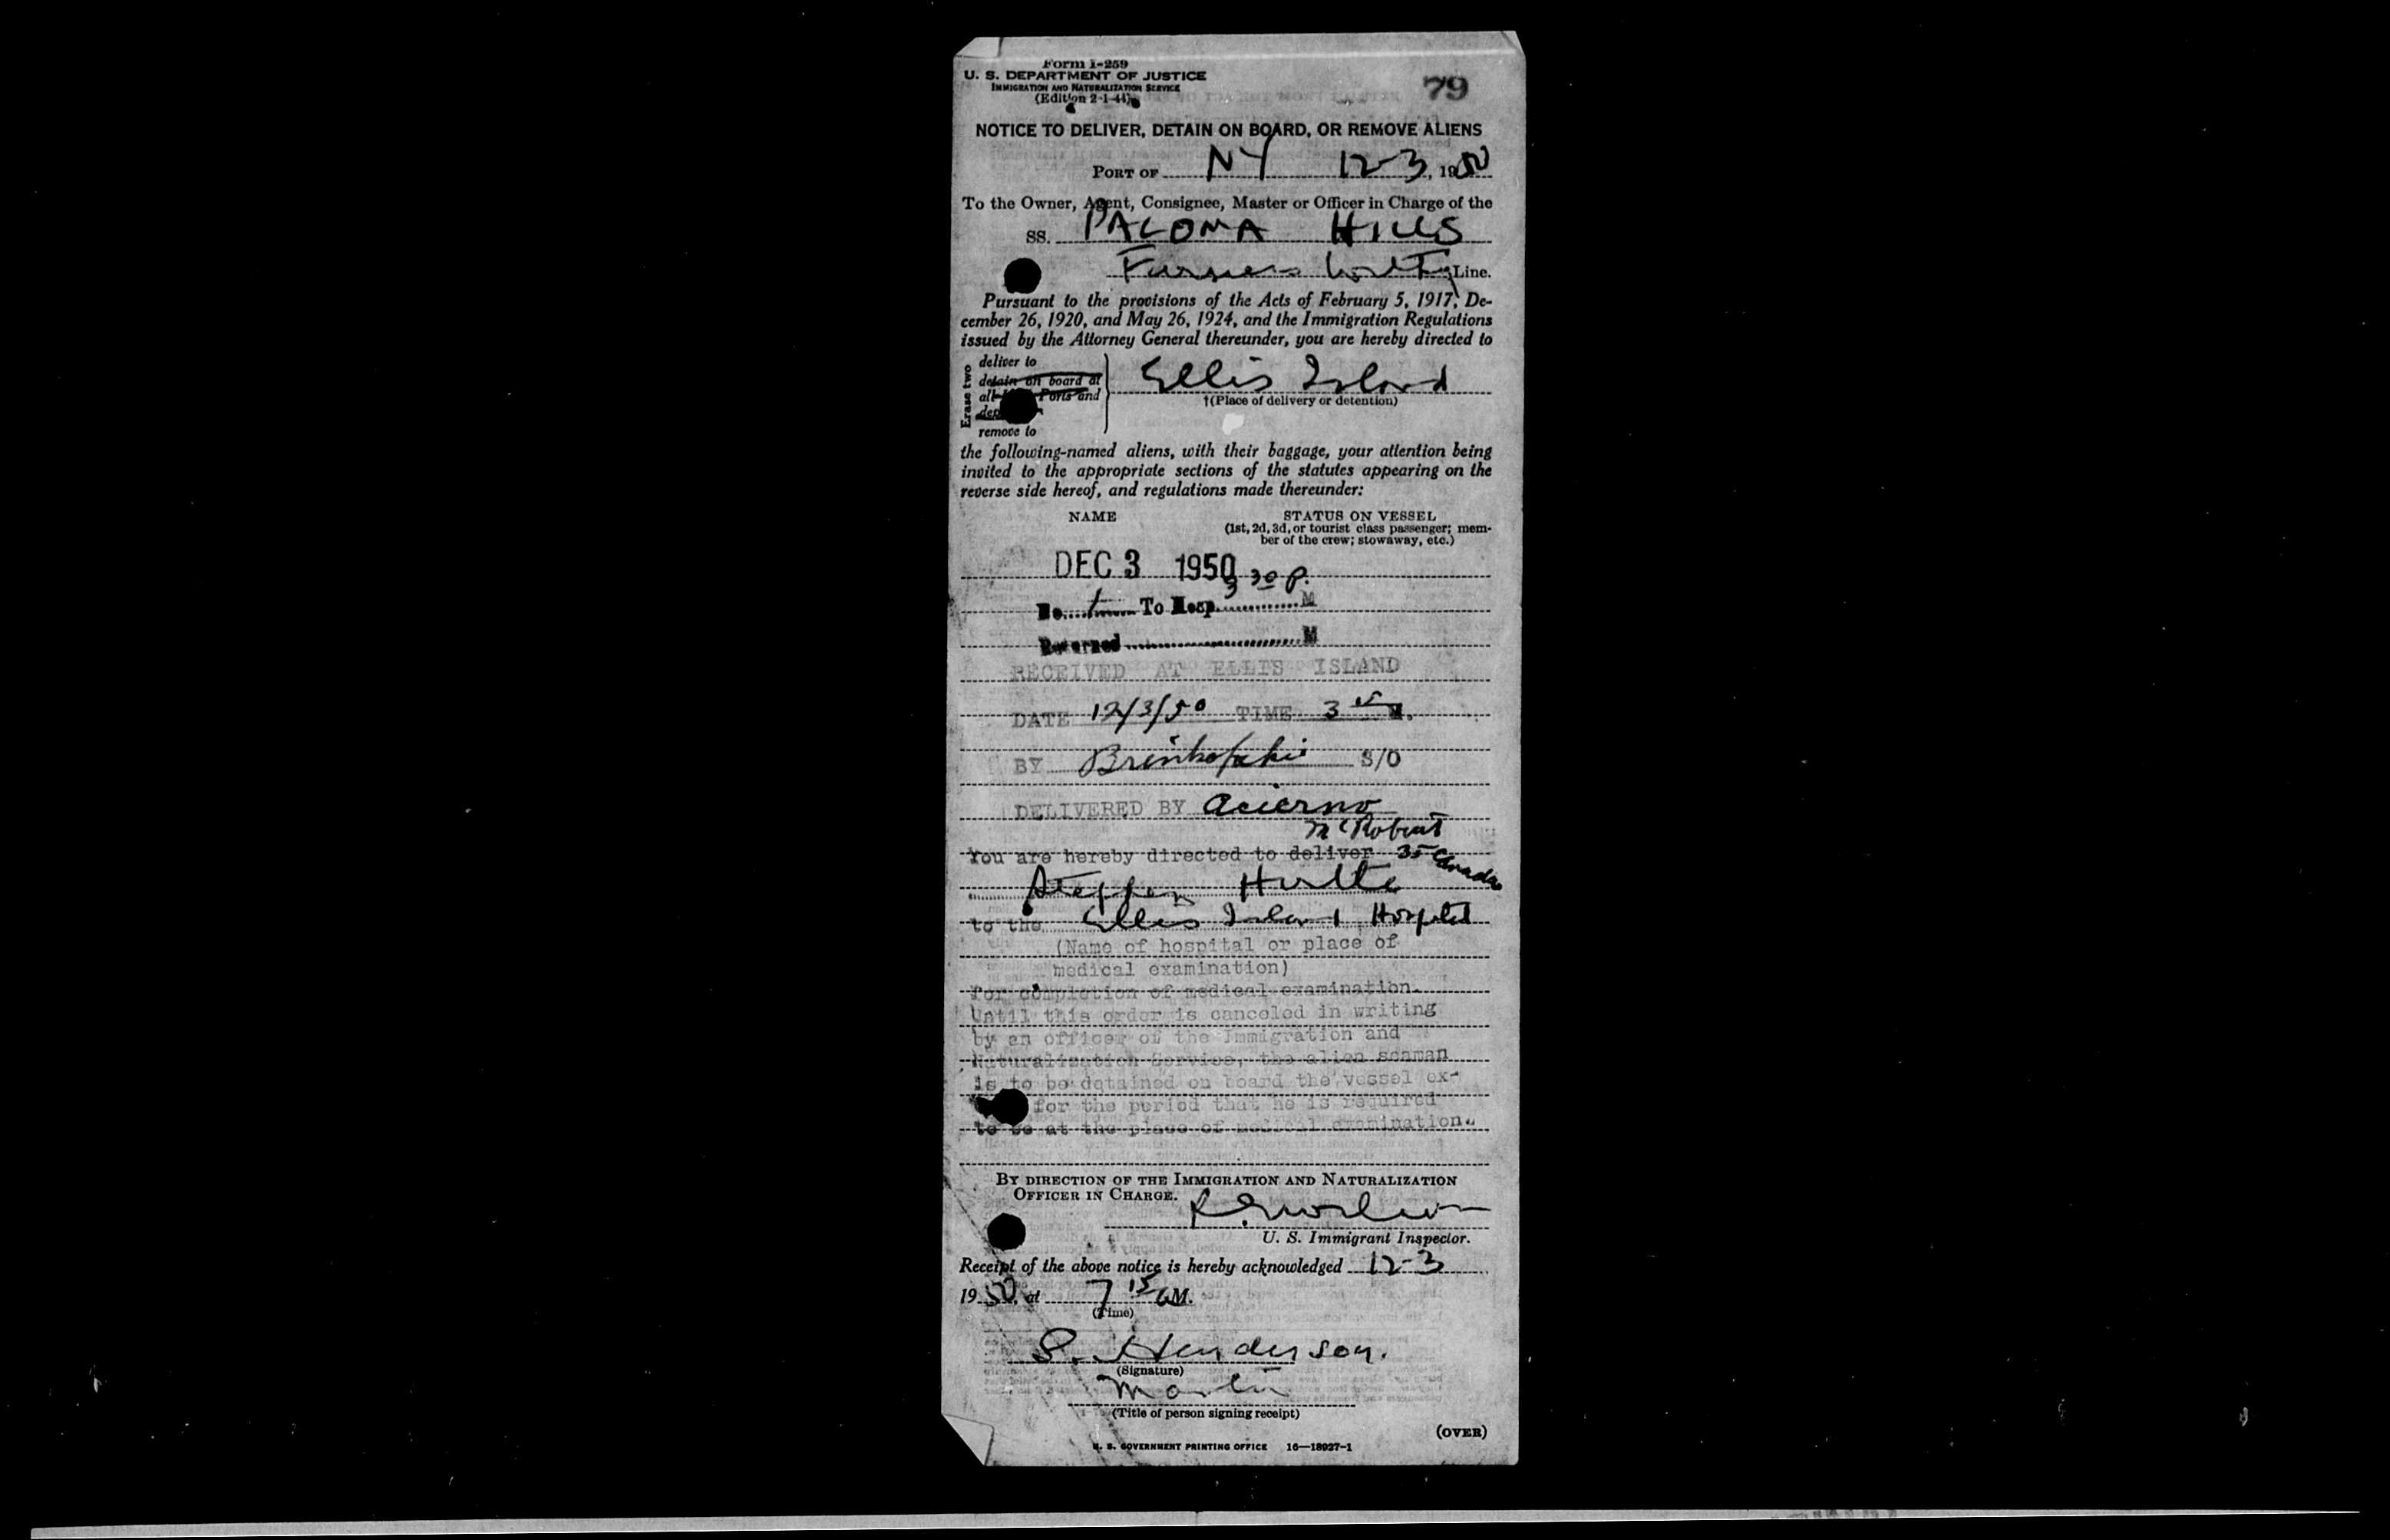 Form I-259
U. S. DEPARTMENT OF JUSTICE
IMMIGRATION AND NATURALIZATION SERVICE
(Edition 2-1-44)
79
NOTICE TO DELIVER, DETAIN ON BOARD, OR REMOVE ALIENS
PORT OF NY 12-3, 1950
To the Owner, Agent, Consignee, Master or Officer in Charge of the
SS. PALOMA HILLS
Line.
Pursuant to the provisions of the Acts of February 5, 1917, De-
cember 26, 1920, and May 26, 1924, and the Immigration Regulations
issued by the Attorney General thereunder, you are hereby directed to
Erase two
deliver to
detain on board at
all Ports and
remove to
Ellis Island
†(Place of delivery or detention)
the following-named aliens, with their baggage, your attention being
invited to the appropriate sections of the statutes appearing on the
reverse side hereof, and regulations made thereunder:
NAME
STATUS ON VESSEL
(1st, 2d, 3d, or tourist class passenger; mem-
ber of the crew; stowaway, etc.)
DEC 3 1950
3 30 P.
No. 1 To Hosp. M
Returned M
RECEIVED AT ELLIS ISLAND
DATE 12/3/50 TIME 3 M.
BY S/O
DELIVERED BY Acierno
McRobert
You are hereby directed to deliver 35 Canada
Stephen
to the Ellis Island Hospital
(Name of hospital or place of
medical examination)
for completion of medical examination.
Until this order is canceled in writing
by an officer of the Immigration and
Naturalization Service, the alien seaman
is to be detained on board the vessel ex-
for the period that he is required
to be at the place of medical examination.
BY DIRECTION OF THE IMMIGRATION AND NATURALIZATION
OFFICER IN CHARGE.
U. S. Immigrant Inspector.
Receipt of the above notice is hereby acknowledged 12-3
1950, at 7 15 AM.
(Time)
S. Henderson.
(Signature)
Master
(Title of person signing receipt)
(OVER)
U. S. GOVERNMENT PRINTING OFFICE 16—18927-1